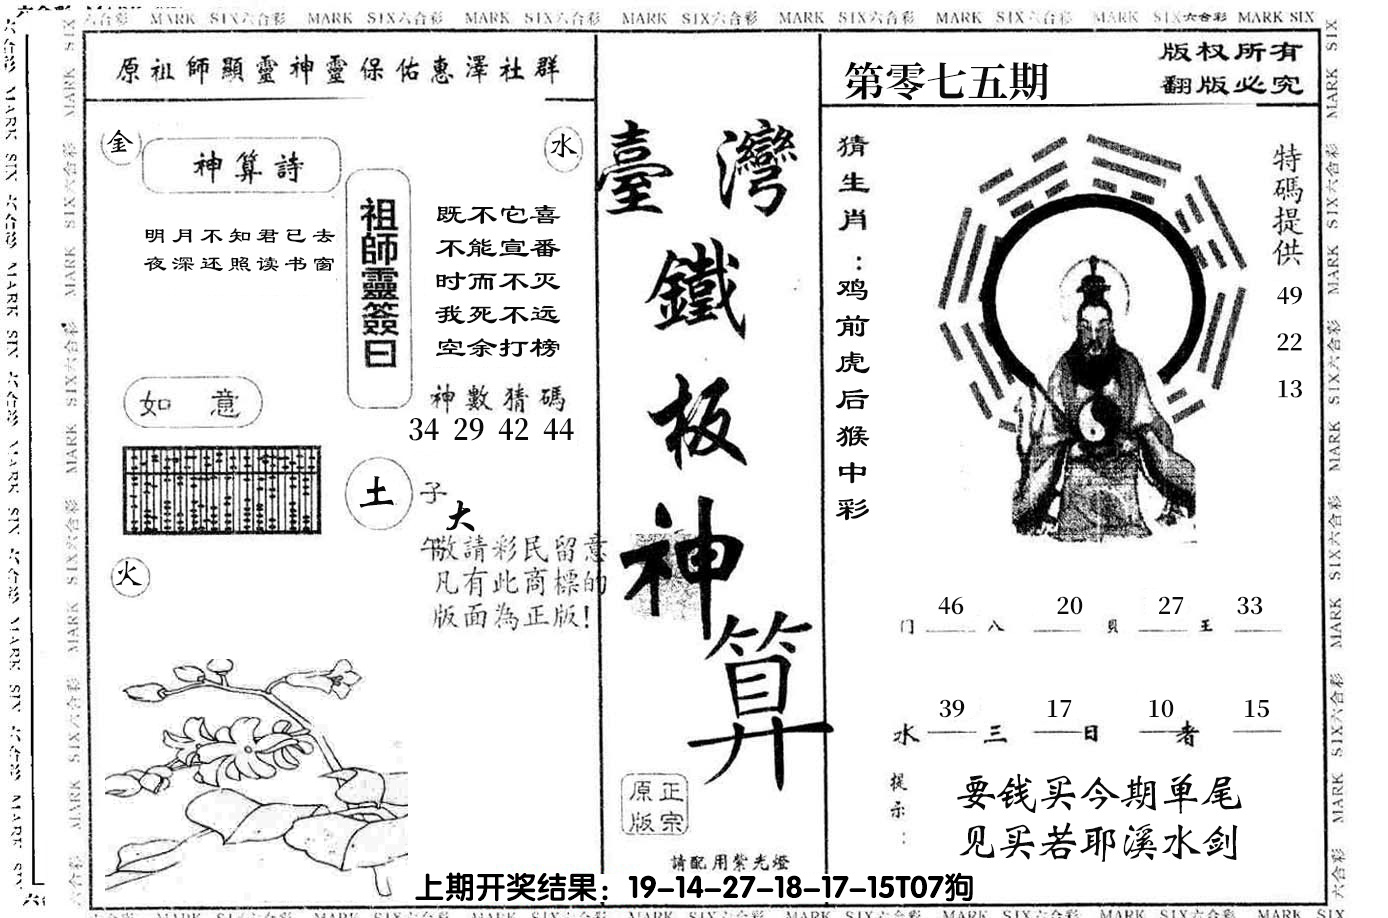 MARK SIX六合彩 MARK SIX六合彩 MARK SIX六合彩 MARK SIX六合彩 MARK SIX六合彩 MARK SIX六合彩 MARK SIX六合彩 MARK SIX
原祖師顯靈神靈保佑惠澤社群
金
水
神算詩
明月不知君已去
夜深还照读书窗
祖師靈簽曰
既不它喜
不能宣番
时而不灭
我死不远
空余打榜
神數猜碼
34 29 42 44
如 意
土
子
大
午
敬請彩民留意
凡有此商標的
版面為正版!
火
臺灣
鐵
板
神
算
正宗
原版
請配用紫光燈
第零七五期
版权所有
翻版必究
猜生肖:鸡前虎后猴中彩
特碼提供
49
22
13
46 20 27 33
门 八 貝 王
39 17 10 15
水 三 日 者
提示:
要钱买今期单尾
见买若耶溪水剑
上期开奖结果：19-14-27-18-17-15T07狗